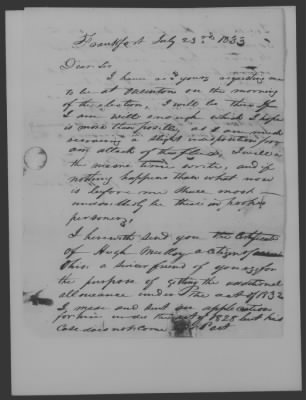 Frankfort July 23rd 1833
Dear Sir
I have recd yours requesting me
to be at on the morning
of the election, I will be there If
I am well enough which I hope
is more than possible, as I am much
recovering a slight indisposition from
an attack of the fluid, I will in
the mean time write, and if
nothing happens than what now
is before me I shall most
undoubtedly be there in proper
person
I herewith send you the Certificate
of Hugh McKoy a citizen of
Ohio, a sincere friend of yours, for
the purpose of getting the additional
allowance under the act of 1832
I made and sent an application
for him under the act of 1828 but his
Case does not come act